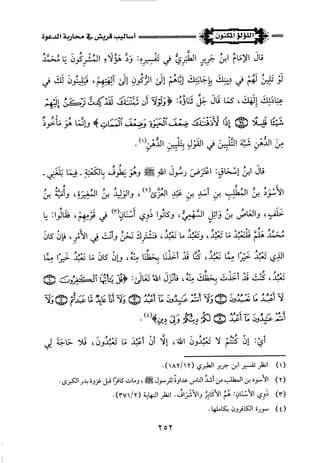 اللؤلؤ المكنون
أساليب قريش في محاربة الدعوة
قَالَ الإِمَامُ ابنُ جَرِيرٍ الطَّبَرِيُّ في تَفْسِيرِهِ: وَدَّ هَؤُلَاءِ المُشْرِكُونَ يَا مُحَمَّدُ
لَوْ تَلِينُ لَهُمْ في دِينِكَ بِإِجَابَتِكَ إِيَّاهُمْ إِلَى الرُّكُونِ إِلَى آلِهَتِهِمْ، فَيَلِينُونَ لَكَ في
عِبَادَتِكَ إِلَهَكَ، كَمَا قَالَ جَلَّ ثَنَاؤُهُ: ﴿وَلَوْلَا أَن ثَبَّتْنَاكَ لَقَدْ كِدتَّ تَرْكَنُ إِلَيْهِمْ
شَيْئًا قَلِيلًا ۝ إِذًا لَّأَذَقْنَاكَ ضِعْفَ الْحَيَوٰةِ وَضِعْفَ الْمَمَاتِ﴾ وإِنَّمَا هُوَ مَأْخُوذٌ
مِنَ الدُّهْنِ شَبَّهَ التَّلْيِينَ في القَوْلِ بِتَلْيِينِ الدُّهْنِ(١).
قَالَ ابنُ إِسْحَاقَ: اعْتَرَضَ رَسُولَ اللهِ ﷺ وهُوَ يَطُوفُ بِالكَعْبَةِ ـ فِيمَا بَلَغَنِي ـ
الأَسْوَدُ بنُ المُطَّلِبِ بنِ أَسَدِ بنِ عَبْدِ العُزَّى(٢)، والوَلِيدُ بنُ المُغِيرَةِ، وأُمَيَّةُ بنُ
خَلَفٍ، والعَاصُ بنُ وَائِلٍ السَّهْمِيُّ، وكَانُوا ذَوِي أَسْنَانٍ(٣) في قَوْمِهِمْ، فقَالُوا: يَا
مُحَمَّدُ هَلُمَّ فَلْنَعْبُدْ مَا تَعْبُدُ، وتَعْبُدُ مَا نَعْبُدُ، فنَشْتَرِكُ نَحْنُ وأَنْتَ في الأَمْرِ، فإِنْ كَانَ
الذِي تَعْبُدُ خَيْرًا مِمَّا نَعْبُدُ، كُنَّا قَدْ أَخَذْنَا بِحَظِّنَا مِنْهُ، وإِنْ كَانَ مَا نَعْبُدُ خَيْرًا مِمَّا
تَعْبُدُ، كُنْتَ قَدْ أَخَذْتَ بِحَظِّكَ مِنْهُ، فأَنْزَلَ اللهُ تَعَالَى: ﴿قُلْ يَٰأَيُّهَا الْكَافِرُونَ ۝
لَا أَعْبُدُ مَا تَعْبُدُونَ ۝ وَلَا أَنتُمْ عَابِدُونَ مَا أَعْبُدُ ۝ وَلَا أَنَا عَابِدٌ مَّا عَبَدتُّمْ ۝
وَلَا أَنتُمْ عَابِدُونَ مَا أَعْبُدُ ۝ لَكُمْ دِينُكُمْ وَلِيَ دِينِ﴾(٤).
أَيْ: إِنْ كُنْتُمْ لَا تَعْبُدُونَ اللهَ، إِلَّا أَنْ أَعْبُدَ مَا تَعْبُدُونَ، فَلَا حَاجَةَ لِي
(١) انظر تفسير ابن جرير الطبري (١٨٢/١٢).
(٢) الأسود بن المطلب من أشد الناس عداوة للرسول ﷺ، ومات كافرًا قبل غزوة بدر الكبرى.
(٣) ذَوِي الأَسْنَانِ: هُمُ الأَكَابِرُ والأَشْرَافُ. انظر النهاية (٣٧١/٢).
(٤) سورة الكافرون بكاملها.
٢٥٢